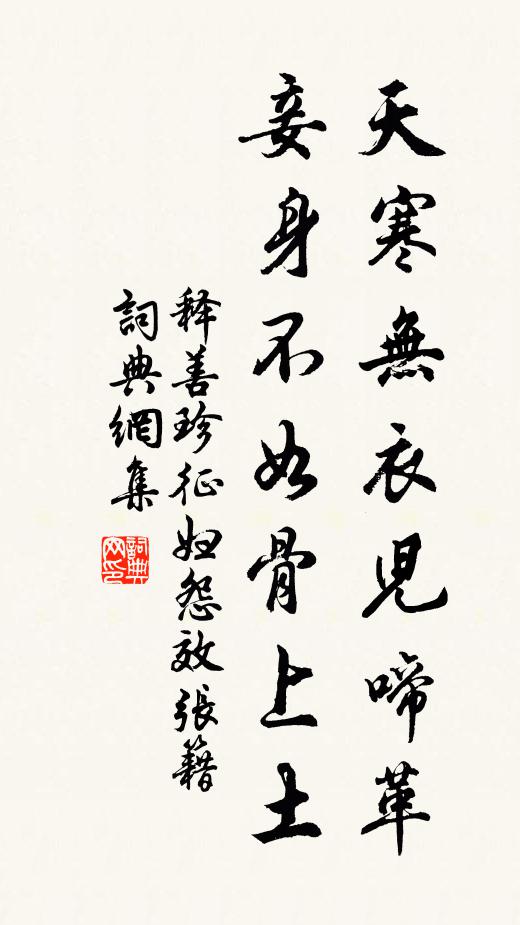 天寒無衣児啼革
妾身不如骨上土
释善珍征妇怨效張籍
詞典網集
詞典网印